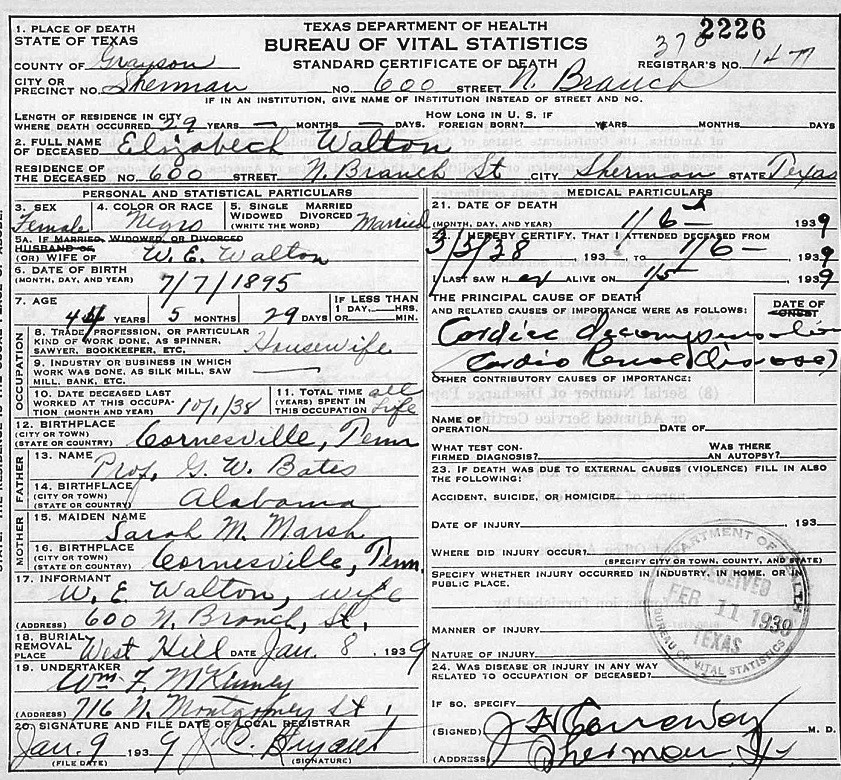 TEXAS DEPARTMENT OF HEALTH
BUREAU OF VITAL STATISTICS
STANDARD CERTIFICATE OF DEATH
2226
REGISTRAR'S NO. 1477
1. PLACE OF DEATH
STATE OF TEXAS
COUNTY OF Grayson
CITY OR PRECINCT NO. Sherman NO. 600 STREET N. Branch
IF IN AN INSTITUTION, GIVE NAME OF INSTITUTION INSTEAD OF STREET AND NO.
LENGTH OF RESIDENCE IN CITY WHERE DEATH OCCURRED 29 YEARS — MONTHS — DAYS. HOW LONG IN U. S. IF FOREIGN BORN? YEARS MONTHS DAYS
2. FULL NAME OF DECEASED Elizabech Walton
RESIDENCE OF THE DECEASED NO. 600 STREET N. Branch St CITY Sherman STATE Texas
PERSONAL AND STATISTICAL PARTICULARS
3. SEX Female
4. COLOR OR RACE Negro
5. SINGLE MARRIED WIDOWED DIVORCED (WRITE THE WORD) Married
5A. IF MARRIED, WIDOWED, OR DIVORCED
HUSBAND OF
(OR) WIFE OF W. E. Walton
6. DATE OF BIRTH (MONTH, DAY, AND YEAR) 7/7/1895
7. AGE YEARS 5 MONTHS 29 DAYS
IF LESS THAN 1 DAY, HRS. OR MIN.
OCCUPATION
8. TRADE, PROFESSION, OR PARTICULAR KIND OF WORK DONE, AS SPINNER, SAWYER, BOOKKEEPER, ETC. Housewife
9. INDUSTRY OR BUSINESS IN WHICH WORK WAS DONE, AS SILK MILL, SAW MILL, BANK, ETC. —
10. DATE DECEASED LAST WORKED AT THIS OCCUPATION (MONTH AND YEAR) 10/1/38
11. TOTAL TIME (YEARS) SPENT IN THIS OCCUPATION all Life
12. BIRTHPLACE (CITY OR TOWN) (STATE OR COUNTRY) Cornesville, Tenn
FATHER
13. NAME Prof. G. W. Bates
14. BIRTHPLACE (CITY OR TOWN) (STATE OR COUNTRY) Alabama
MOTHER
15. MAIDEN NAME Sarah M. Marsh
16. BIRTHPLACE (CITY OR TOWN) (STATE OR COUNTRY) Cornesville, Tenn.
17. INFORMANT W. E. Walton, wife
(ADDRESS) 600 N. Branch, St.
18. BURIAL REMOVAL PLACE West Hill DATE Jan. 8, 1939
19. UNDERTAKER Wm. F. McKinney
(ADDRESS) 716 N. Montgomery St.
20. SIGNATURE AND FILE DATE OF LOCAL REGISTRAR
Jan. 9 1939 J. C. Bryant
(FILE DATE) (SIGNATURE)
MEDICAL PARTICULARS
21. DATE OF DEATH
(MONTH, DAY, AND YEAR) 1/6 — 1939
22. I HEREBY CERTIFY, THAT I ATTENDED DECEASED FROM
3/5/38 193 TO 1/6 — 1939
I LAST SAW H er ALIVE ON 1/5 — 1939
THE PRINCIPAL CAUSE OF DEATH AND RELATED CAUSES OF IMPORTANCE WERE AS FOLLOWS:
DATE OF ONSET
Cardiac decompensation
(Cardio Renal disease)
OTHER CONTRIBUTORY CAUSES OF IMPORTANCE:
NAME OF OPERATION DATE OF
WHAT TEST CONFIRMED DIAGNOSIS? WAS THERE AN AUTOPSY?
23. IF DEATH WAS DUE TO EXTERNAL CAUSES (VIOLENCE) FILL IN ALSO THE FOLLOWING:
ACCIDENT, SUICIDE, OR HOMICIDE.
DATE OF INJURY 193
WHERE DID INJURY OCCUR?
(SPECIFY CITY OR TOWN, COUNTY, AND STATE)
SPECIFY WHETHER INJURY OCCURRED IN INDUSTRY, IN HOME, OR PUBLIC PLACE.
MANNER OF INJURY
NATURE OF INJURY
24. WAS DISEASE OR INJURY IN ANY WAY RELATED TO OCCUPATION OF DECEASED?
IF SO, SPECIFY
(SIGNED) M. D.
(ADDRESS) Sherman
DEPARTMENT OF HEALTH
RECEIVED
FEB 11 1939
TEXAS
BUREAU OF VITAL STATISTICS